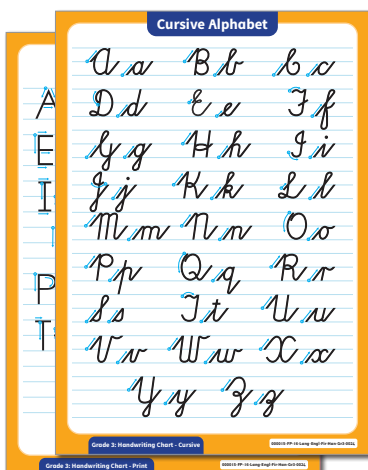 Cursive Alphabet
A a B b C c
D d E e F f
G g H h I i
J j K k L l
M m N n O o
P p Q q R r
S s T t U u
V v W w X x
Y y Z z
Grade 3: Handwriting Chart - Cursive
000515-FP-16-Lang-Engl-Fir-Han-Gr3-0024
A
E
I
P
T
Grade 3: Handwriting Chart - Print
000515-FP-16-Lang-Engl-Fir-Han-Gr3-0024